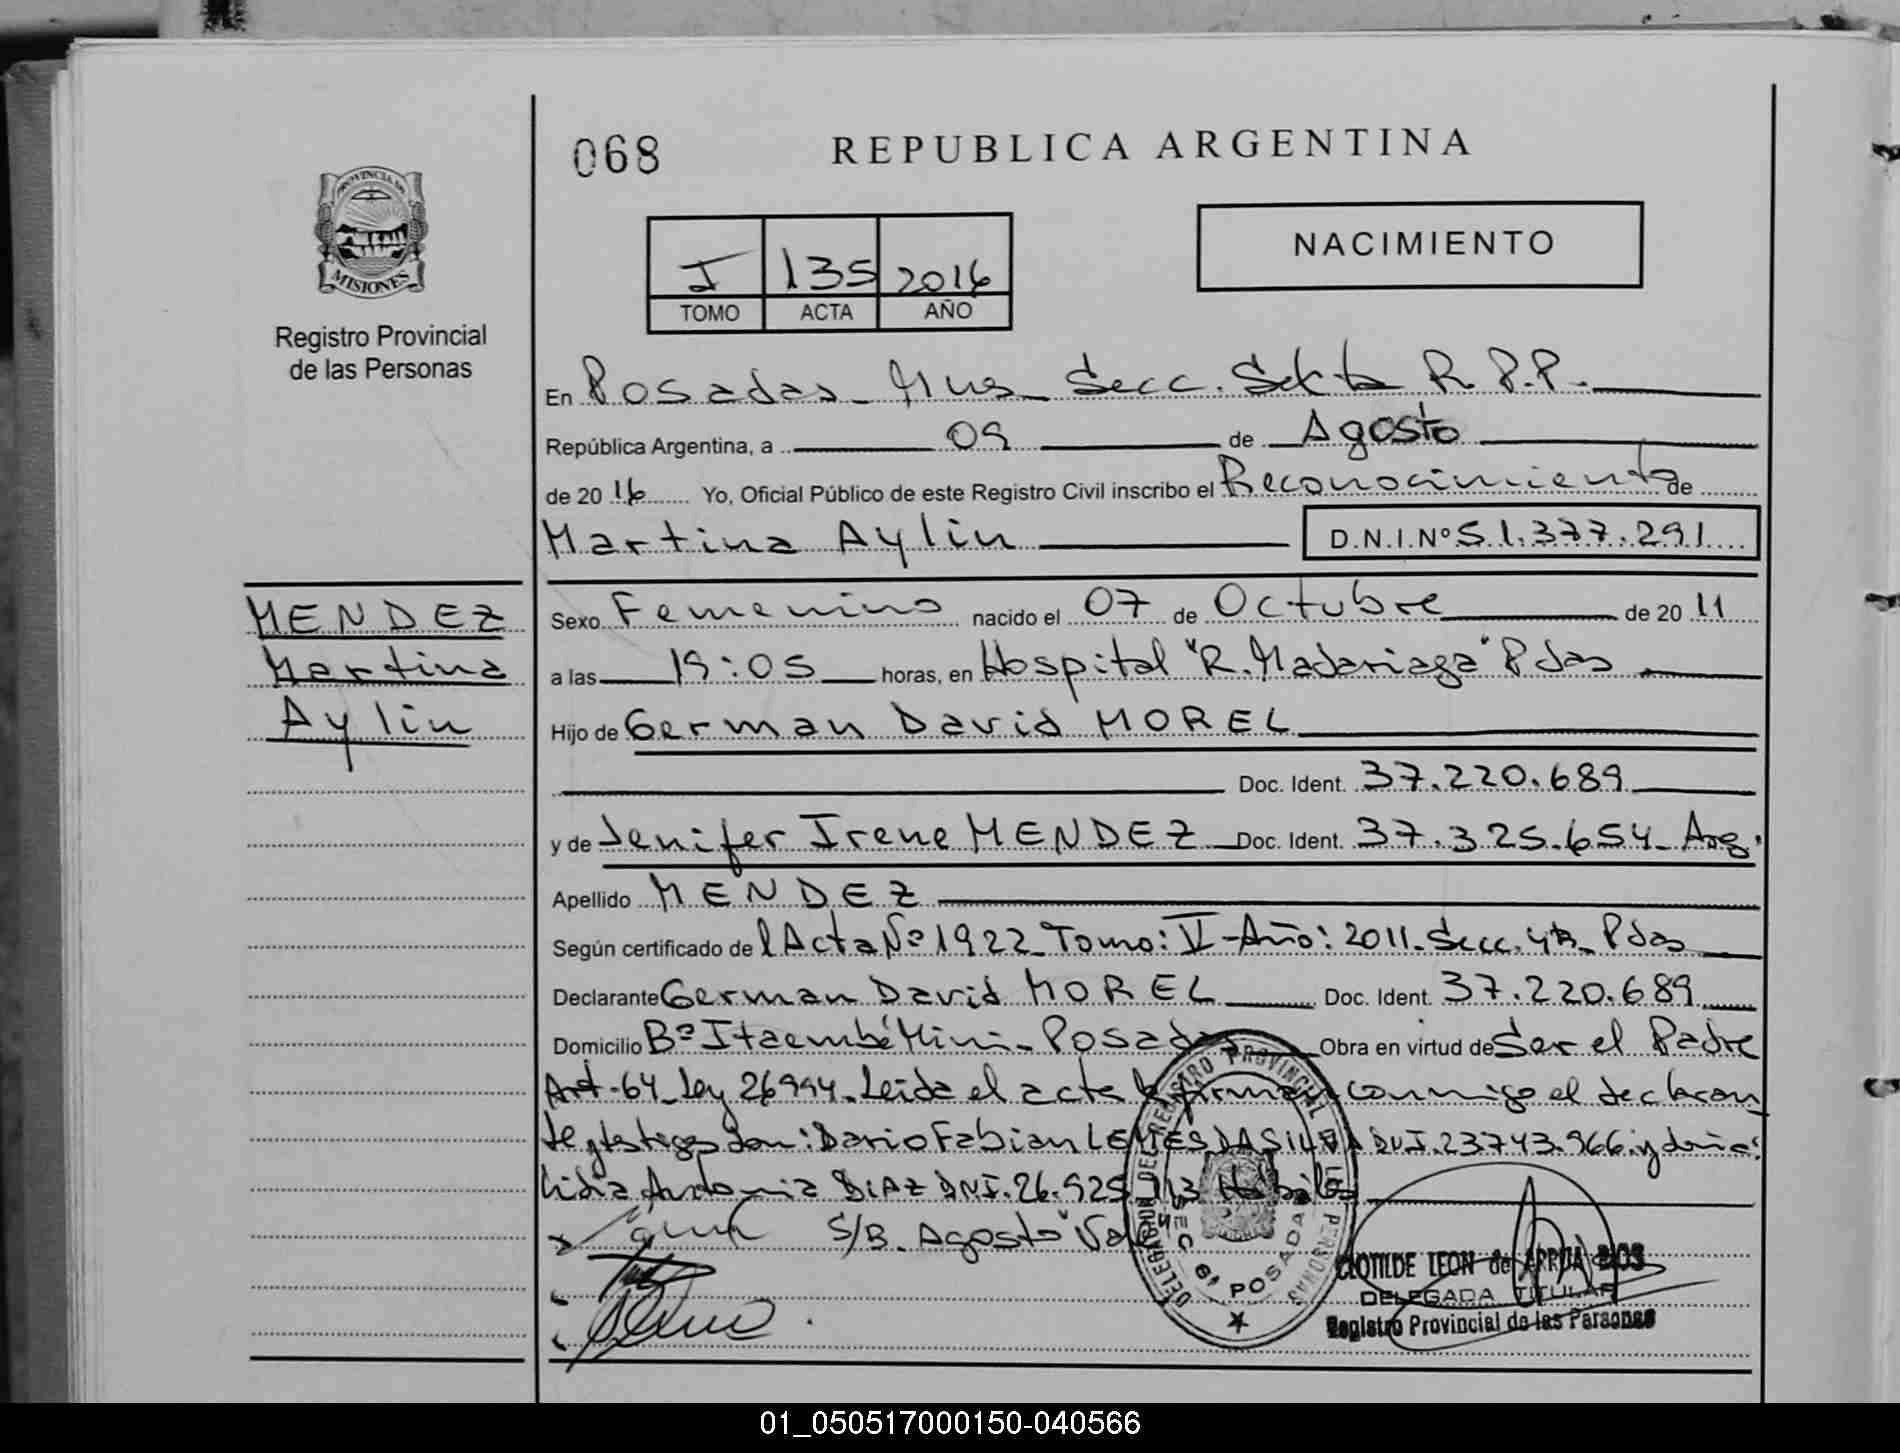 068
REPUBLICA ARGENTINA
PROVINCIA DE
MISIONES
Registro Provincial
de las Personas
I 135 2016
TOMO ACTA AÑO
NACIMIENTO
En Posadas - Mnes - Secc. Sexta R.P.P.
República Argentina, a 09 de Agosto
de 20 16 Yo, Oficial Público de este Registro Civil inscribo el Reconocimiento de
Martina Aylin D.N.I.Nº 51.377.291
MENDEZ
Martina
Aylin
Sexo Femenino nacido el 07 de Octubre de 20 11
a las 19:05 horas, en Hospital "R. Madariaga" Pdas
Hijo de German David MOREL
Doc. Ident. 37.220.689
y de Jenifer Irene MENDEZ Doc. Ident. 37.325.654 - Arg.
Apellido MENDEZ
Según certificado de l Acta Nº 1922 - Tomo: V - Año: 2011 - Secc. 4ta - Pdas
Declarante German David MOREL Doc. Ident. 37.220.689
Domicilio Bº Itaembé Mini - Posadas Obra en virtud de Ser el Padre
Art. 64 - Ley 26994. Leida el acta la firman conmigo el declaran
te y testigos don: Dario Fabian LEMES DA SILVA DNI. 23.743.966 y doña:
Lidia Antonia DIAZ DNI. 26.925.113 Habiles
S/B. Agosto "Vale"
DELEGACION DEL REGISTRO PROVINCIAL DE LAS PERSONAS
SEC 6ª POSADAS
CLOTILDE LEON de ARRUA
DELEGADA TITULAR
Registro Provincial de las Personas
01_050517000150-040566